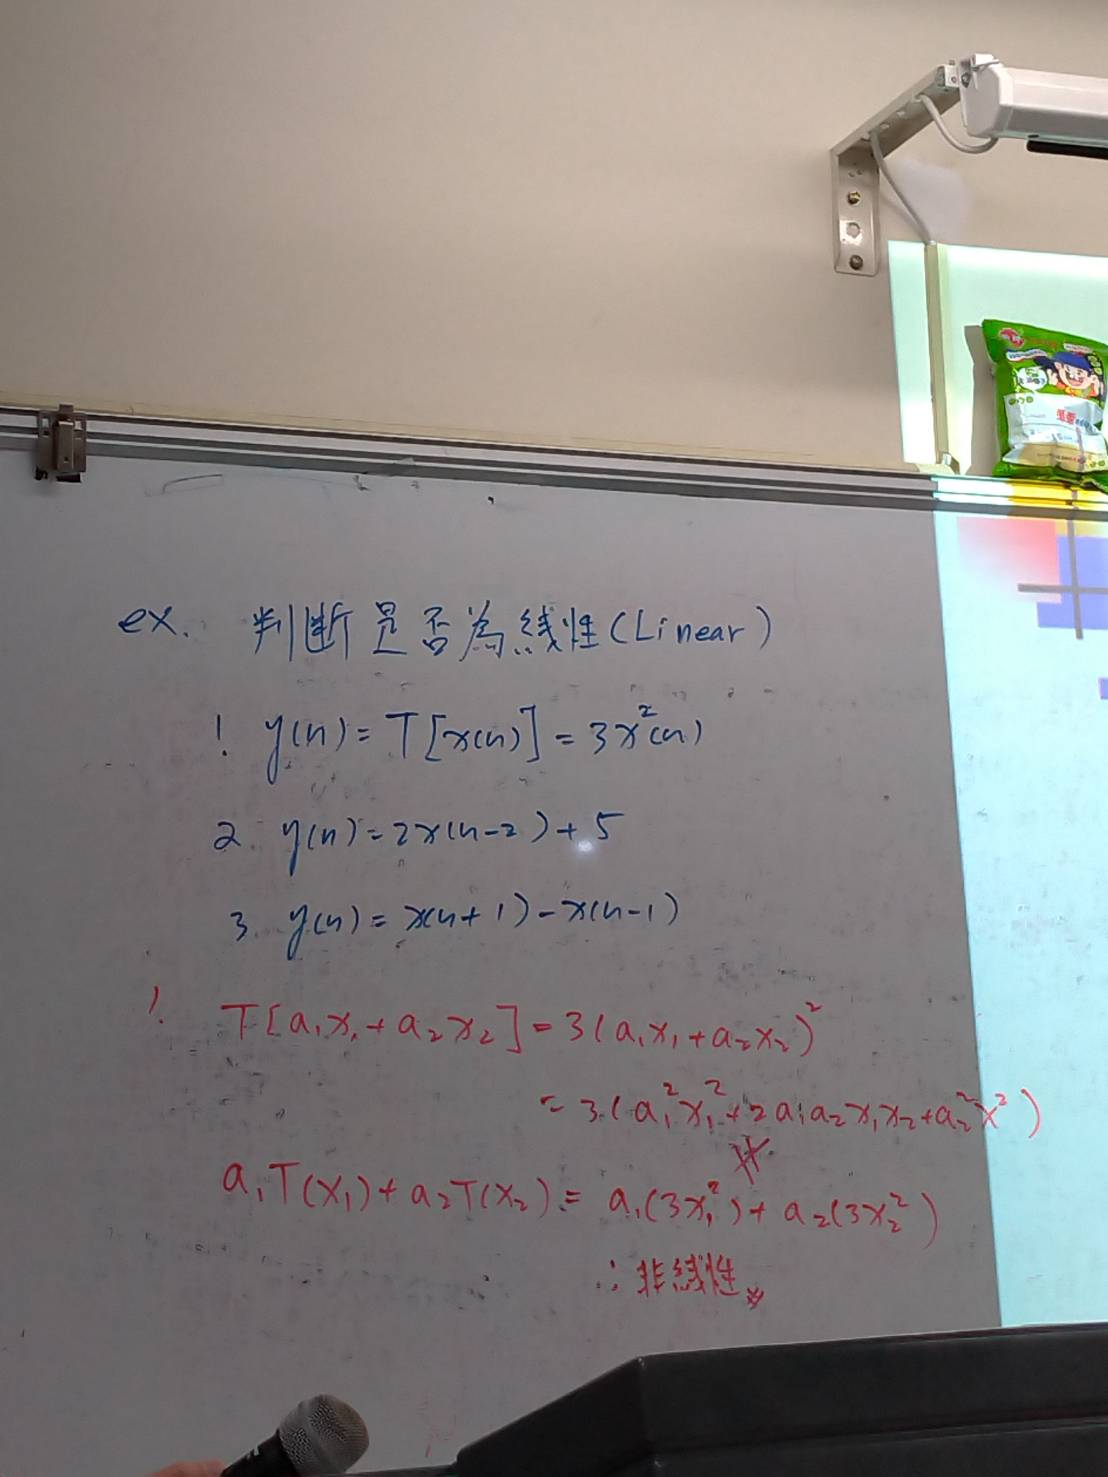 ex. 判斷是否為線性(Linear)
1 y(n) = T[x(n)] = 3x²(n)
2. y(n) = 2x(n-2) + 5
3. y(n) = x(n+1) - x(n-1)
1. T[a₁x₁ + a₂x₂] = 3(a₁x₁ + a₂x₂)²
= 3(a₁²x₁² + 2a₁a₂x₁x₂ + a₂²x²)
a₁T(x₁) + a₂T(x₂) = a₁(3x₁²) + a₂(3x₂²)
∴ 非線性